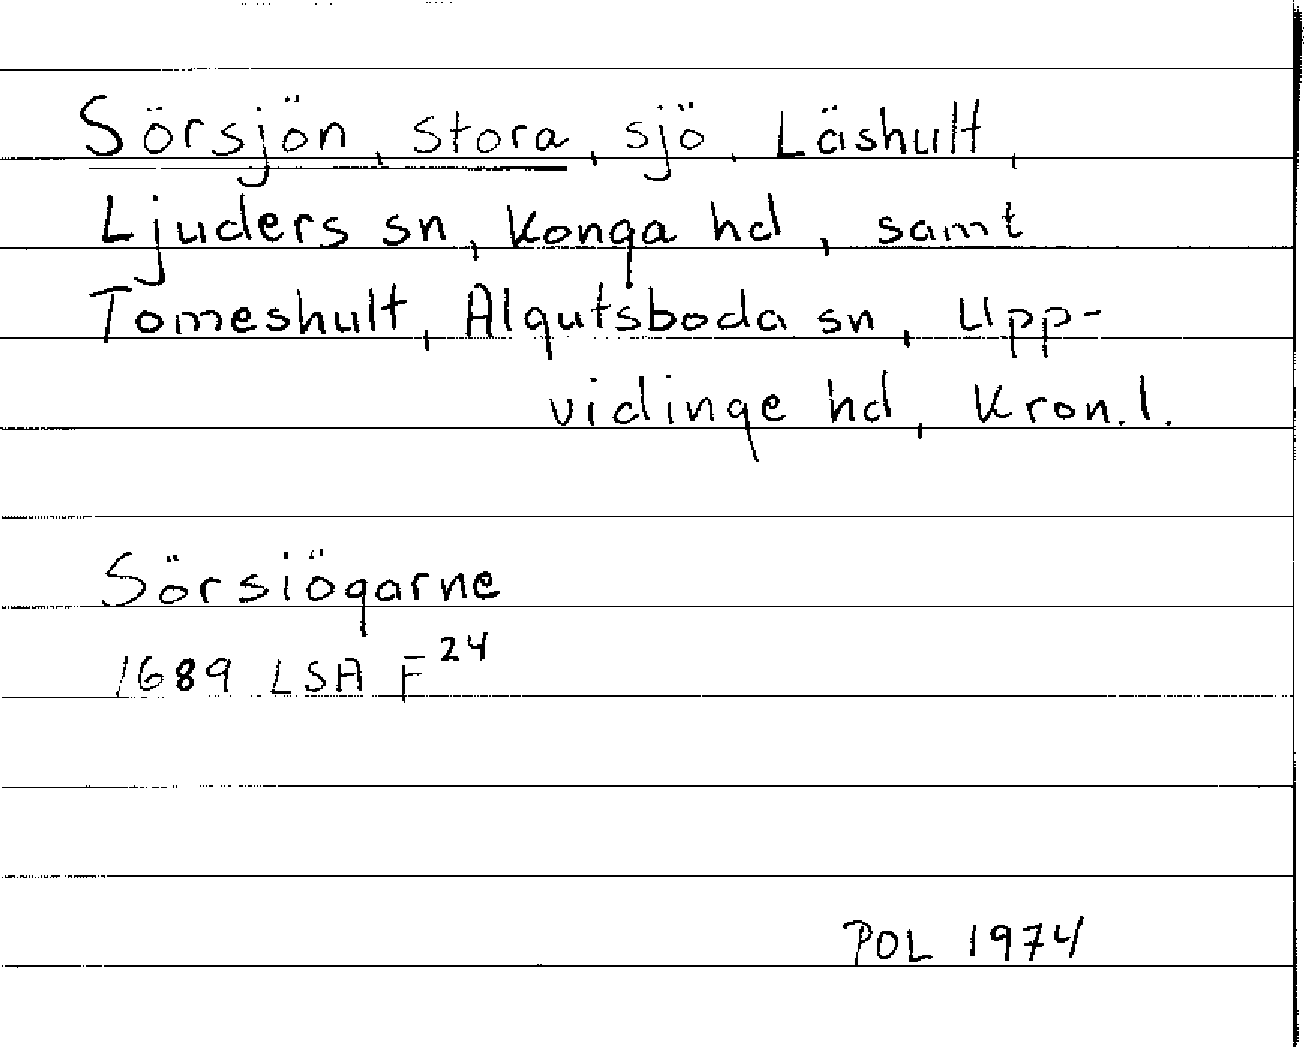 Sörsjön, stora, sjö, Läshult,
Ljuders sn, Konga hd, samt
Tomeshult, Algutsboda sn, Upp-
vidinge hd, Kron.l.
Sörsiögarne
1689 LSA F 24
POL 1974